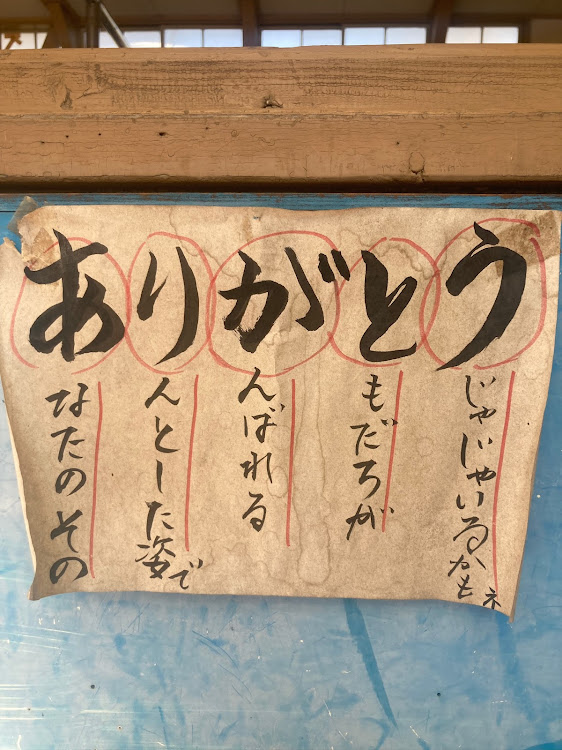 あなたのその
りんとした姿で
がんばれる
ともだちが
うじゃじゃいるかもネ